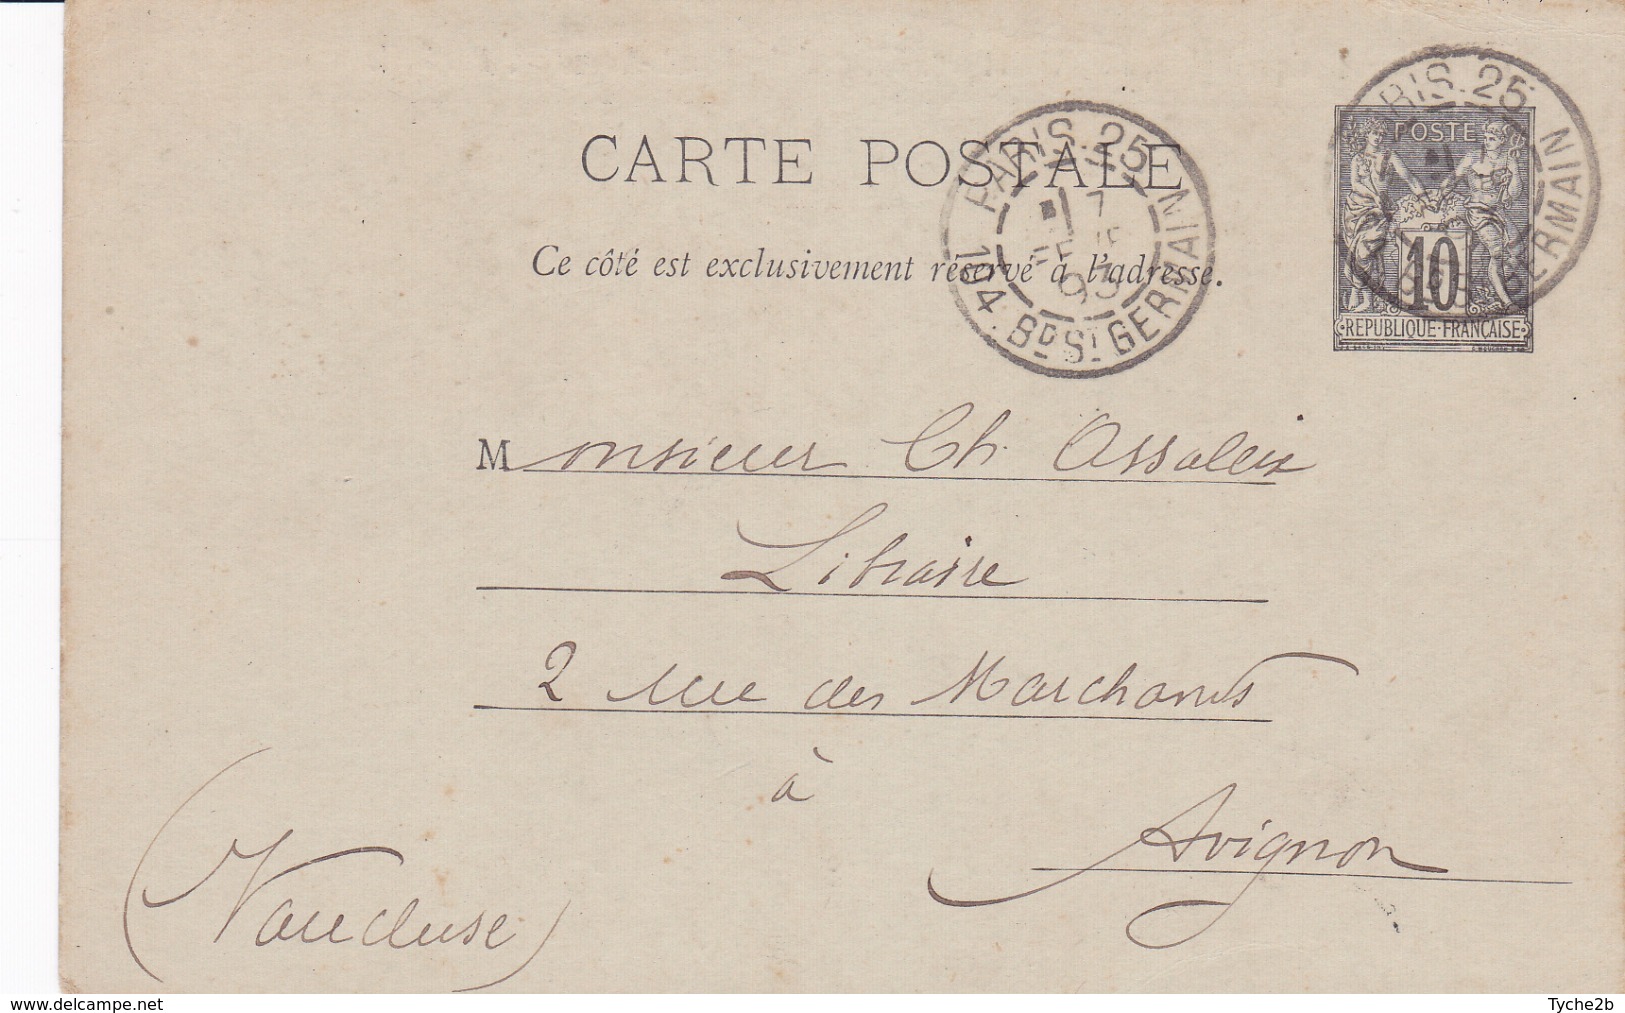 CARTE POSTALE
Ce côté est exclusivement réservé à l'adresse.
PARIS. 25
7
93
104. BD ST GERMAIN
PARIS. 25
GERMAIN
POSTE
10
REPUBLIQUE FRANÇAISE
Monsieur Ch. Assaleix
Libraire
2 rue des Marchands
à
Avignon
(Vaucluse)
www.delcampe.net
Tyche2b